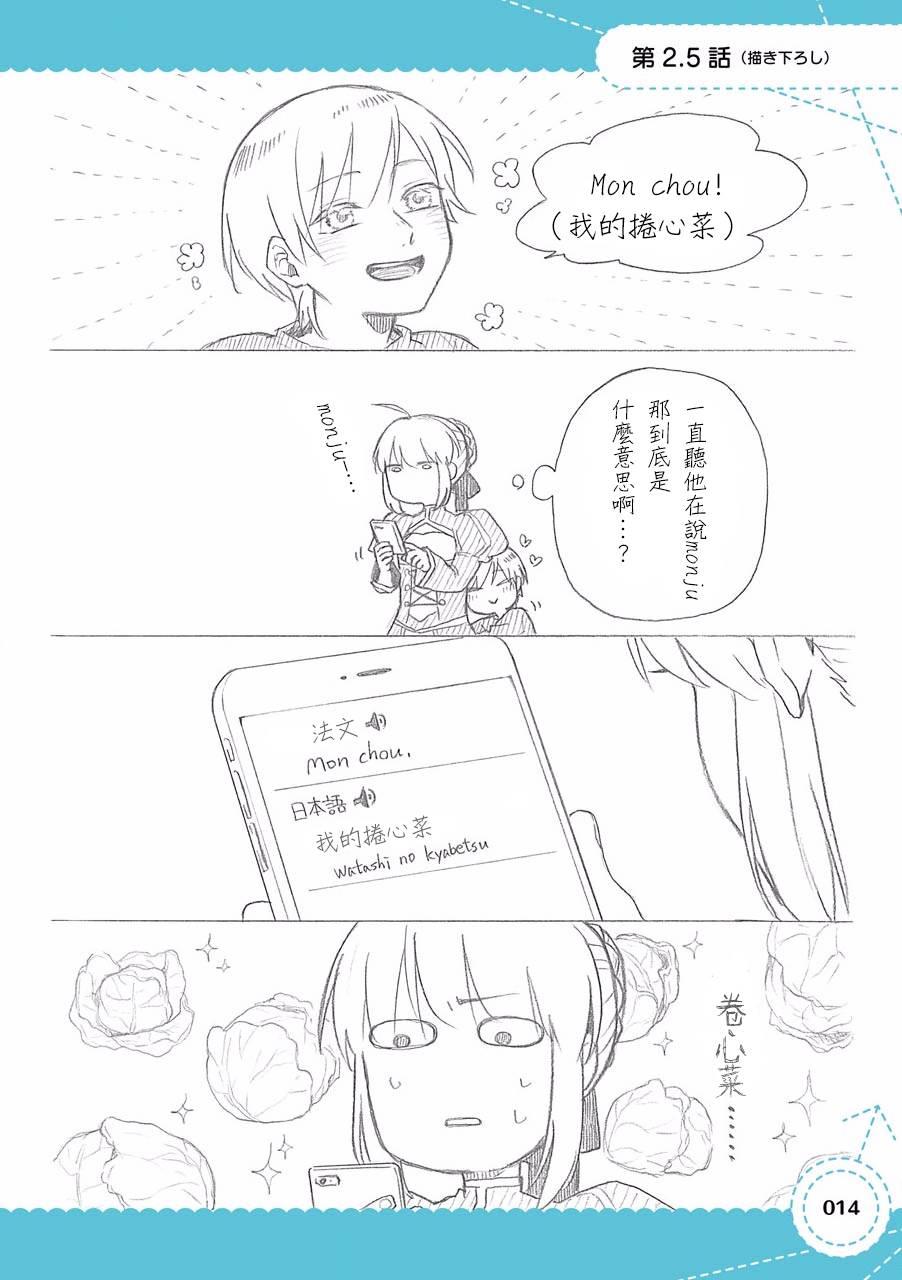 第2.5話（描き下ろし）
Mon chou!
（我的捲心菜）
一直聽他在說monju
那到底是
什麼意思啊…？
monju—…
法文
Mon chou.
日本語
我的捲心菜
watashi no kyabetsu
卷心菜……
014